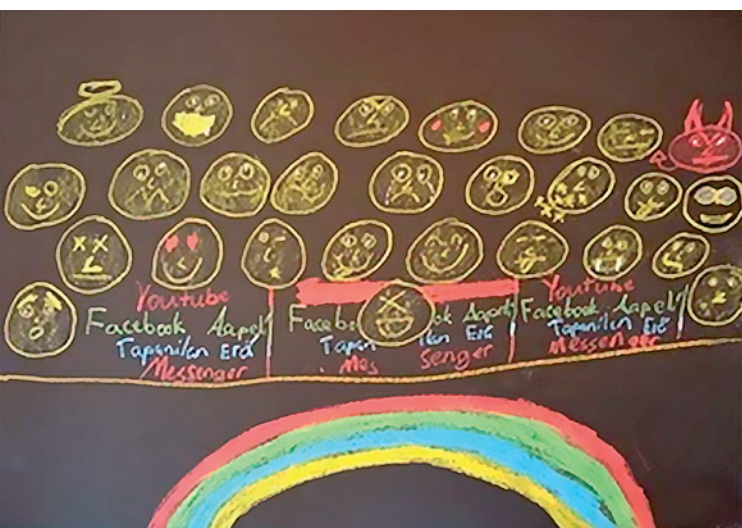 Youtube
Facebook Aapeli
Tapanilan Erä
Messenger
Facebo ok Aapeli
Tapan ilan Erä
Mes senger
Youtube
Facebook Aapeli
Tapanilan Erä
Messenger